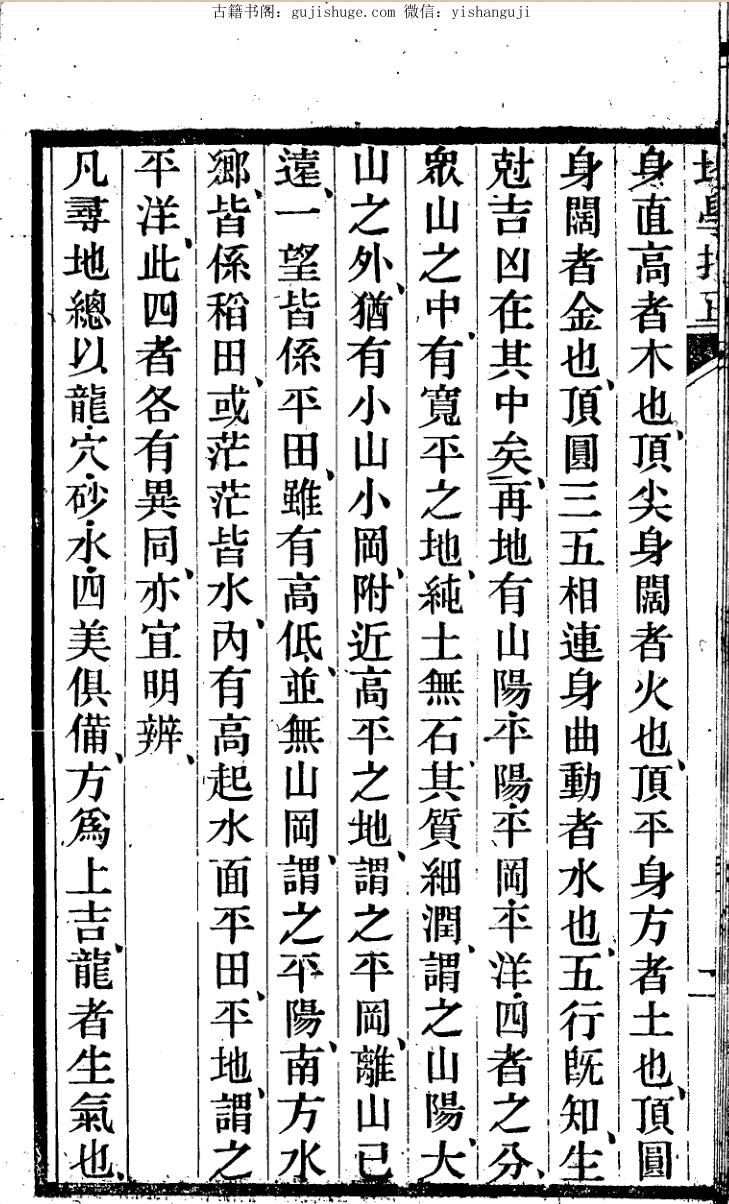 古籍书阁：gujishuge.com 微信：yishanguji
身直高者木也、頂尖身闊者火也、頂平身方者土也、頂圓
身闊者金也、頂圓三五相連身曲動者水也、五行既知、生
尅吉凶在其中矣、再地有山陽·平陽·平岡·平洋·四者之分、
眾山之中、有寬平之地、純土無石、其質細潤、謂之山陽、大
山之外、猶有小山小岡、附近高平之地、謂之平岡、離山已
遠、一望皆係平田、雖有高低、並無山岡、謂之平陽、南方水
鄉、皆係稻田、或茫茫皆水、內有高起水面平田、平地、謂之
平洋、此四者各有異同、亦宜明辨、
凡尋地總以龍·穴·砂·水·四美俱備、方爲上吉、龍者生氣也、
二